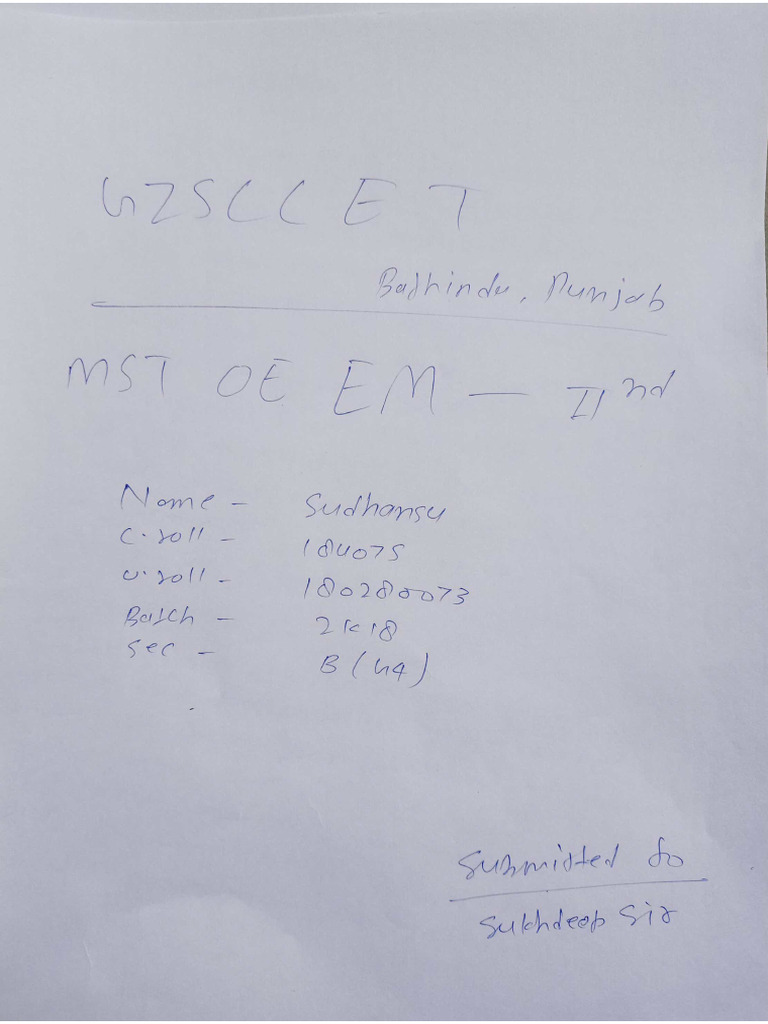 GZSCCET
Bathinda, Punjab
MST OE EM — IInd
Name - Sudhansu
C.roll - 184075
U.roll - 180280073
Batch - 2K18
Sec - B (G4)
Submitted to
Sukhdeep Sir